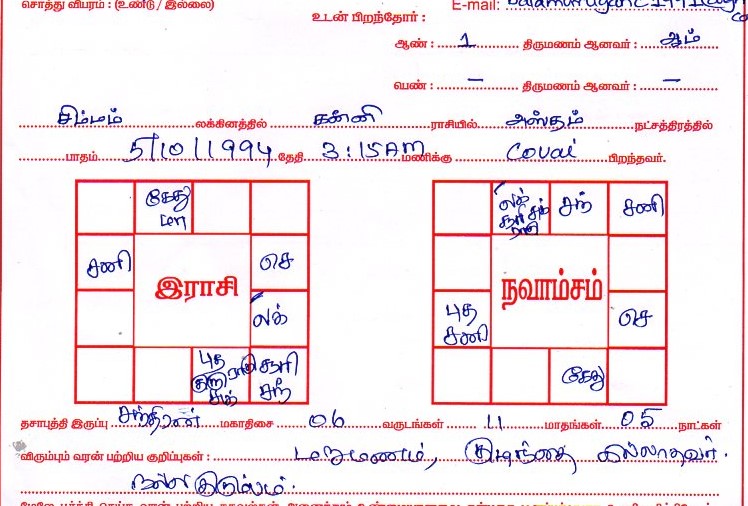 சொத்து விபரம் : (உண்டு / இல்லை)
E-mail:
உடன் பிறந்தோர் :
ஆண் : 1 திருமணம் ஆனவர் : ஆம்
பெண் : – திருமணம் ஆனவர் : –
சிம்மம் லக்கினத்தில் கன்னி ராசியில் அஸ்தம் நட்சத்திரத்தில்
பாதம் 5/10/1994 தேதி 3:15AM மணிக்கு Covai பிறந்தவர்.
கேது
சனி
செ
இராசி
லக்
புத சூரி
குரு ராகு
சுக் சந்
லக் சந் சனி
சூரி
ராகு
நவாம்சம்
புத
சனி
செ
கேது
தசாபுத்தி இருப்பு சந்திரன் மகாதிசை 06 வருடங்கள் 11 மாதங்கள் 05 நாட்கள்
விரும்பும் வரன் பற்றிய குறிப்புகள் : மறுமணம், குழந்தை இல்லாதவர்.
நல்ல குடும்பம்.